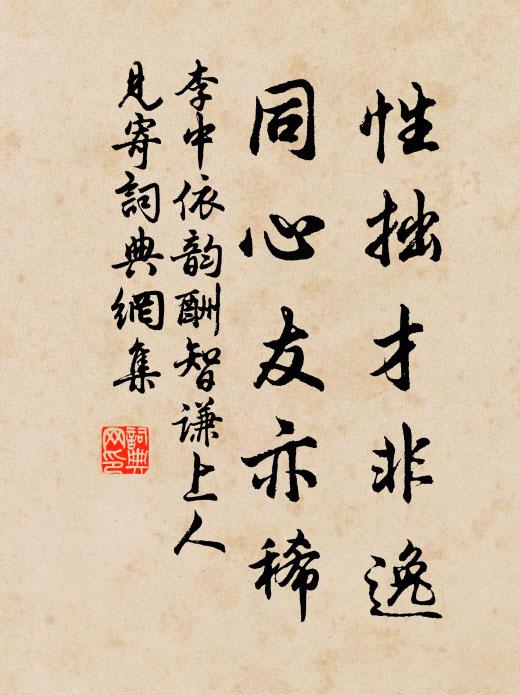 性拙才非逸
同心友亦稀
李中依韵酬智谦上人
見寄詞典網集
詞典
网印